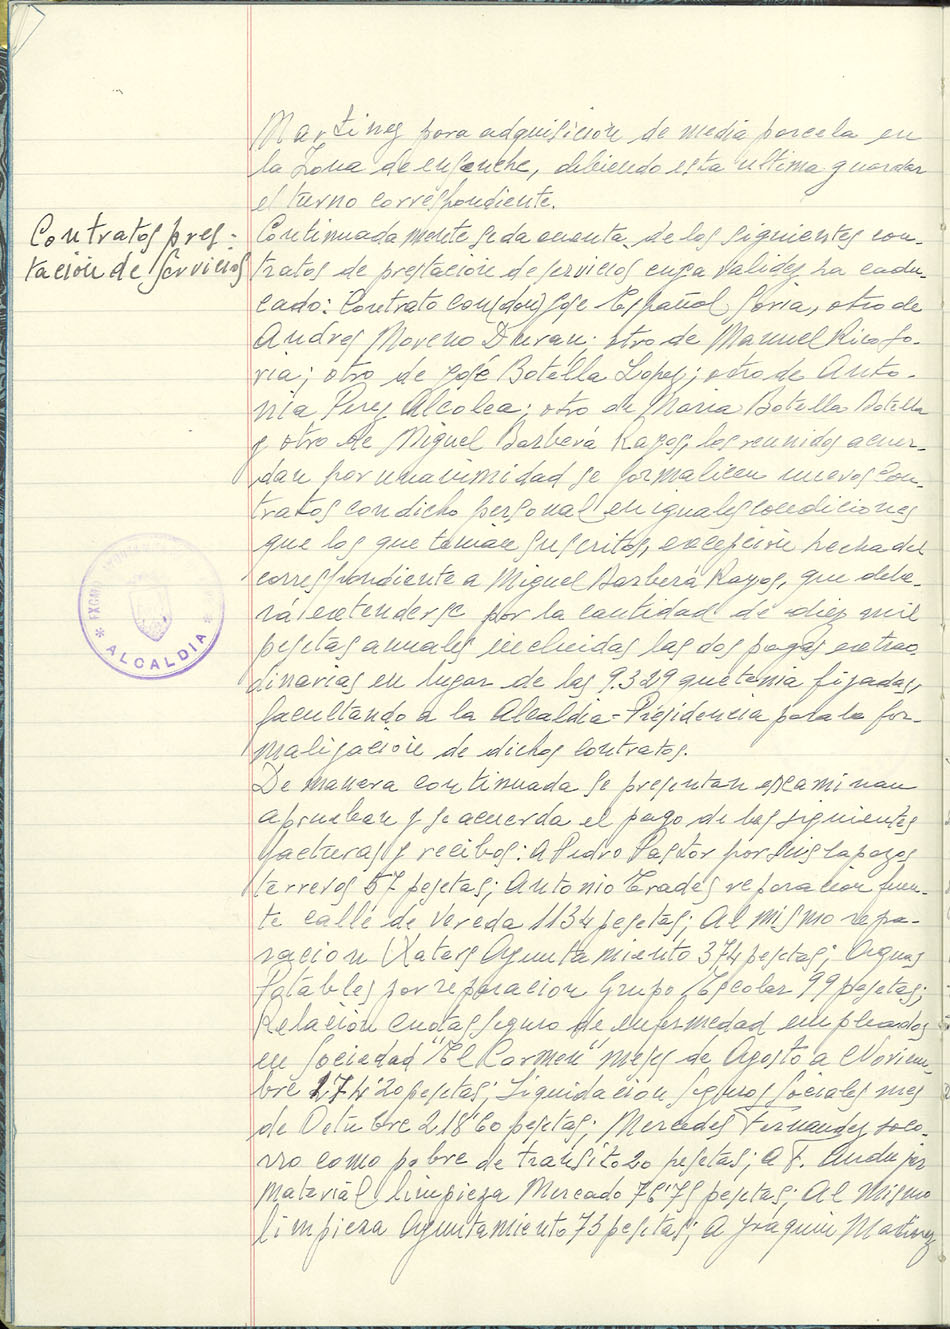 Martinez para adquisicion de media parcela en
la Zona de ensanche, debiendo esta ultima guardar
el turno correspondiente.
Contratos pres-
tacion de servicios
Continuadamente se da cuenta de los siguientes con-
tratos de prestacion de servicios cuya validez ha cadu-
cado: Contrato con don José Español Soria, otro de
Andres Moreno Duran; otro de Manuel Rico So-
ria; otro de José Botella Lopez; otro de Anto-
nia Perez Alcolea; otro de Maria Botella Botella
y otro de Miguel Barberá Rayos, los reunidos acuer-
dan por unanimidad se formalicen nuevos Con-
tratos con dicho personal en iguales condiciones
que los que tenian suscritos, excepcion hecha del
correspondiente a Miguel Barberá Rayos, que debe-
rá extenderse por la cantidad de diez mil
pesetas anuales incluidas las dos pagas extraor-
dinarias en lugar de las 9.329 que tenia fijadas,
facultando a la Alcaldia-Presidencia para la for-
malizacion de dichos contratos.
De manera continuada se presentan examinan
aprueban y se acuerda el pago de las siguientes
facturas y recibos: a Pedro Pastor por
terreros 57 pesetas; Antonio reparacion fuen-
te calle de Vereda 1134 pesetas; Al mismo repa-
racion Waters Ayuntamiento 374 pesetas; Aguas
Potables por reparacion Grupo Escolar 99 pesetas;
Relacion cuotas seguro de enfermedad empleados
en Sociedad "El Carmen" meses de Agosto a Noviem-
bre 174'20 pesetas; Liquidacion Seguros Sociales mes
de Octubre 218'60 pesetas; Mercedes Fernandez soco-
rro como pobre de transito 20 pesetas; a F. Andu por
material limpieza Mercado 76'75 pesetas; Al mismo
limpieza Ayuntamiento 73 pesetas; A Joaquin Martinez
EXCMO. AYUNTAMIENTO
* ALCALDIA *